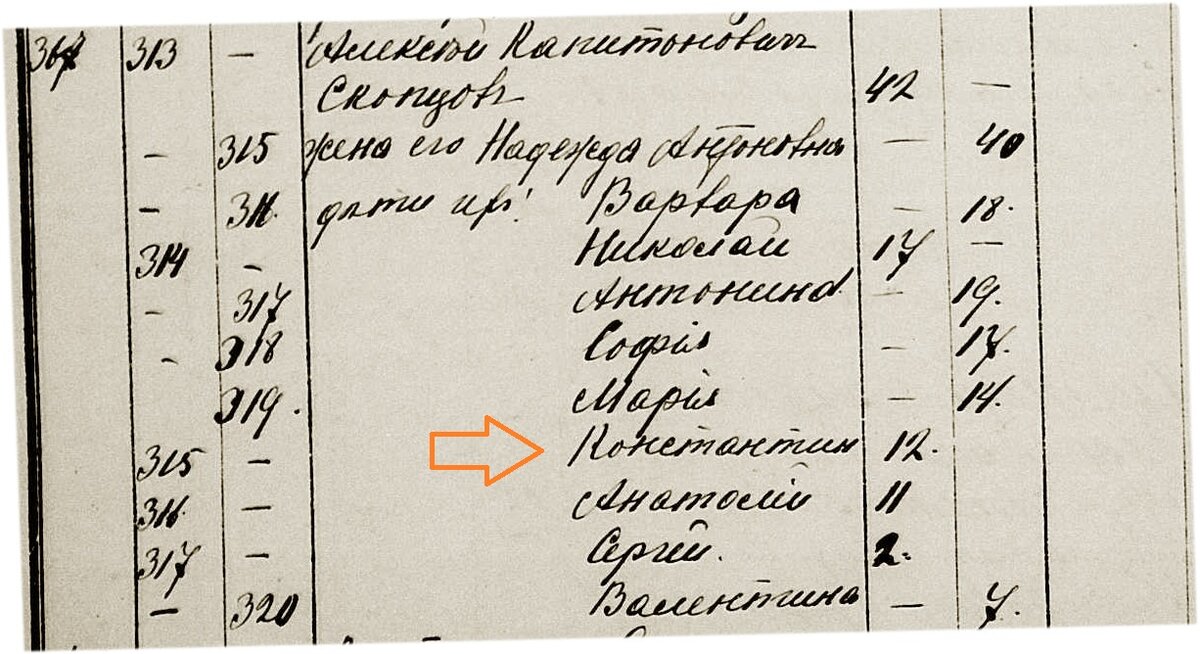 313 — Алексѣй Капитоновичъ
Скопцовъ 42 —
— 315 жена его Надежда Антоновна — 40
— 316. дѣти ихъ: Варвара — 18.
314 — Николай 17 —
— 317 Антонина — 19.
— 318 Софія — 17.
319. Марія — 14.
315 — Константин 12.
316 — Анатолій 11
317 — Сергѣй. 2.
— 320 Валентина — 7.